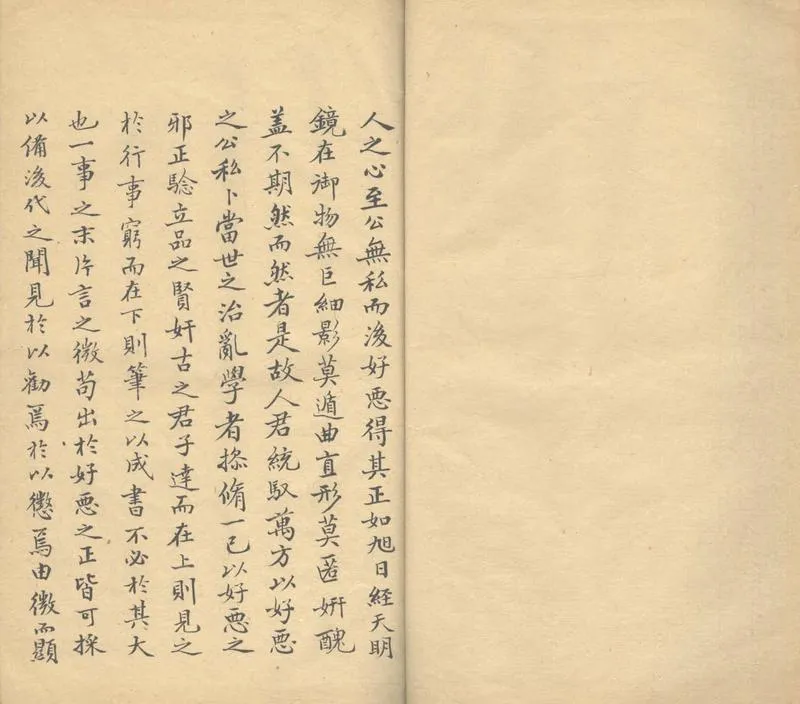 人之心至公無私而後好惡得其正如旭日經天明
鏡在御物無巨細影莫遁曲直形莫匿妍醜
盖不期然而然者是故人君統馭萬方以好惡
之公私卜當世之治亂學者操脩一己以好惡之
邪正驗立品之賢奸古之君子達而在上則見之
於行事窮而在下則筆之以成書不必於其大
也一事之末片言之微苟出於好惡之正皆可採
以備後代之聞見於以勸焉於以懲焉由微而顯